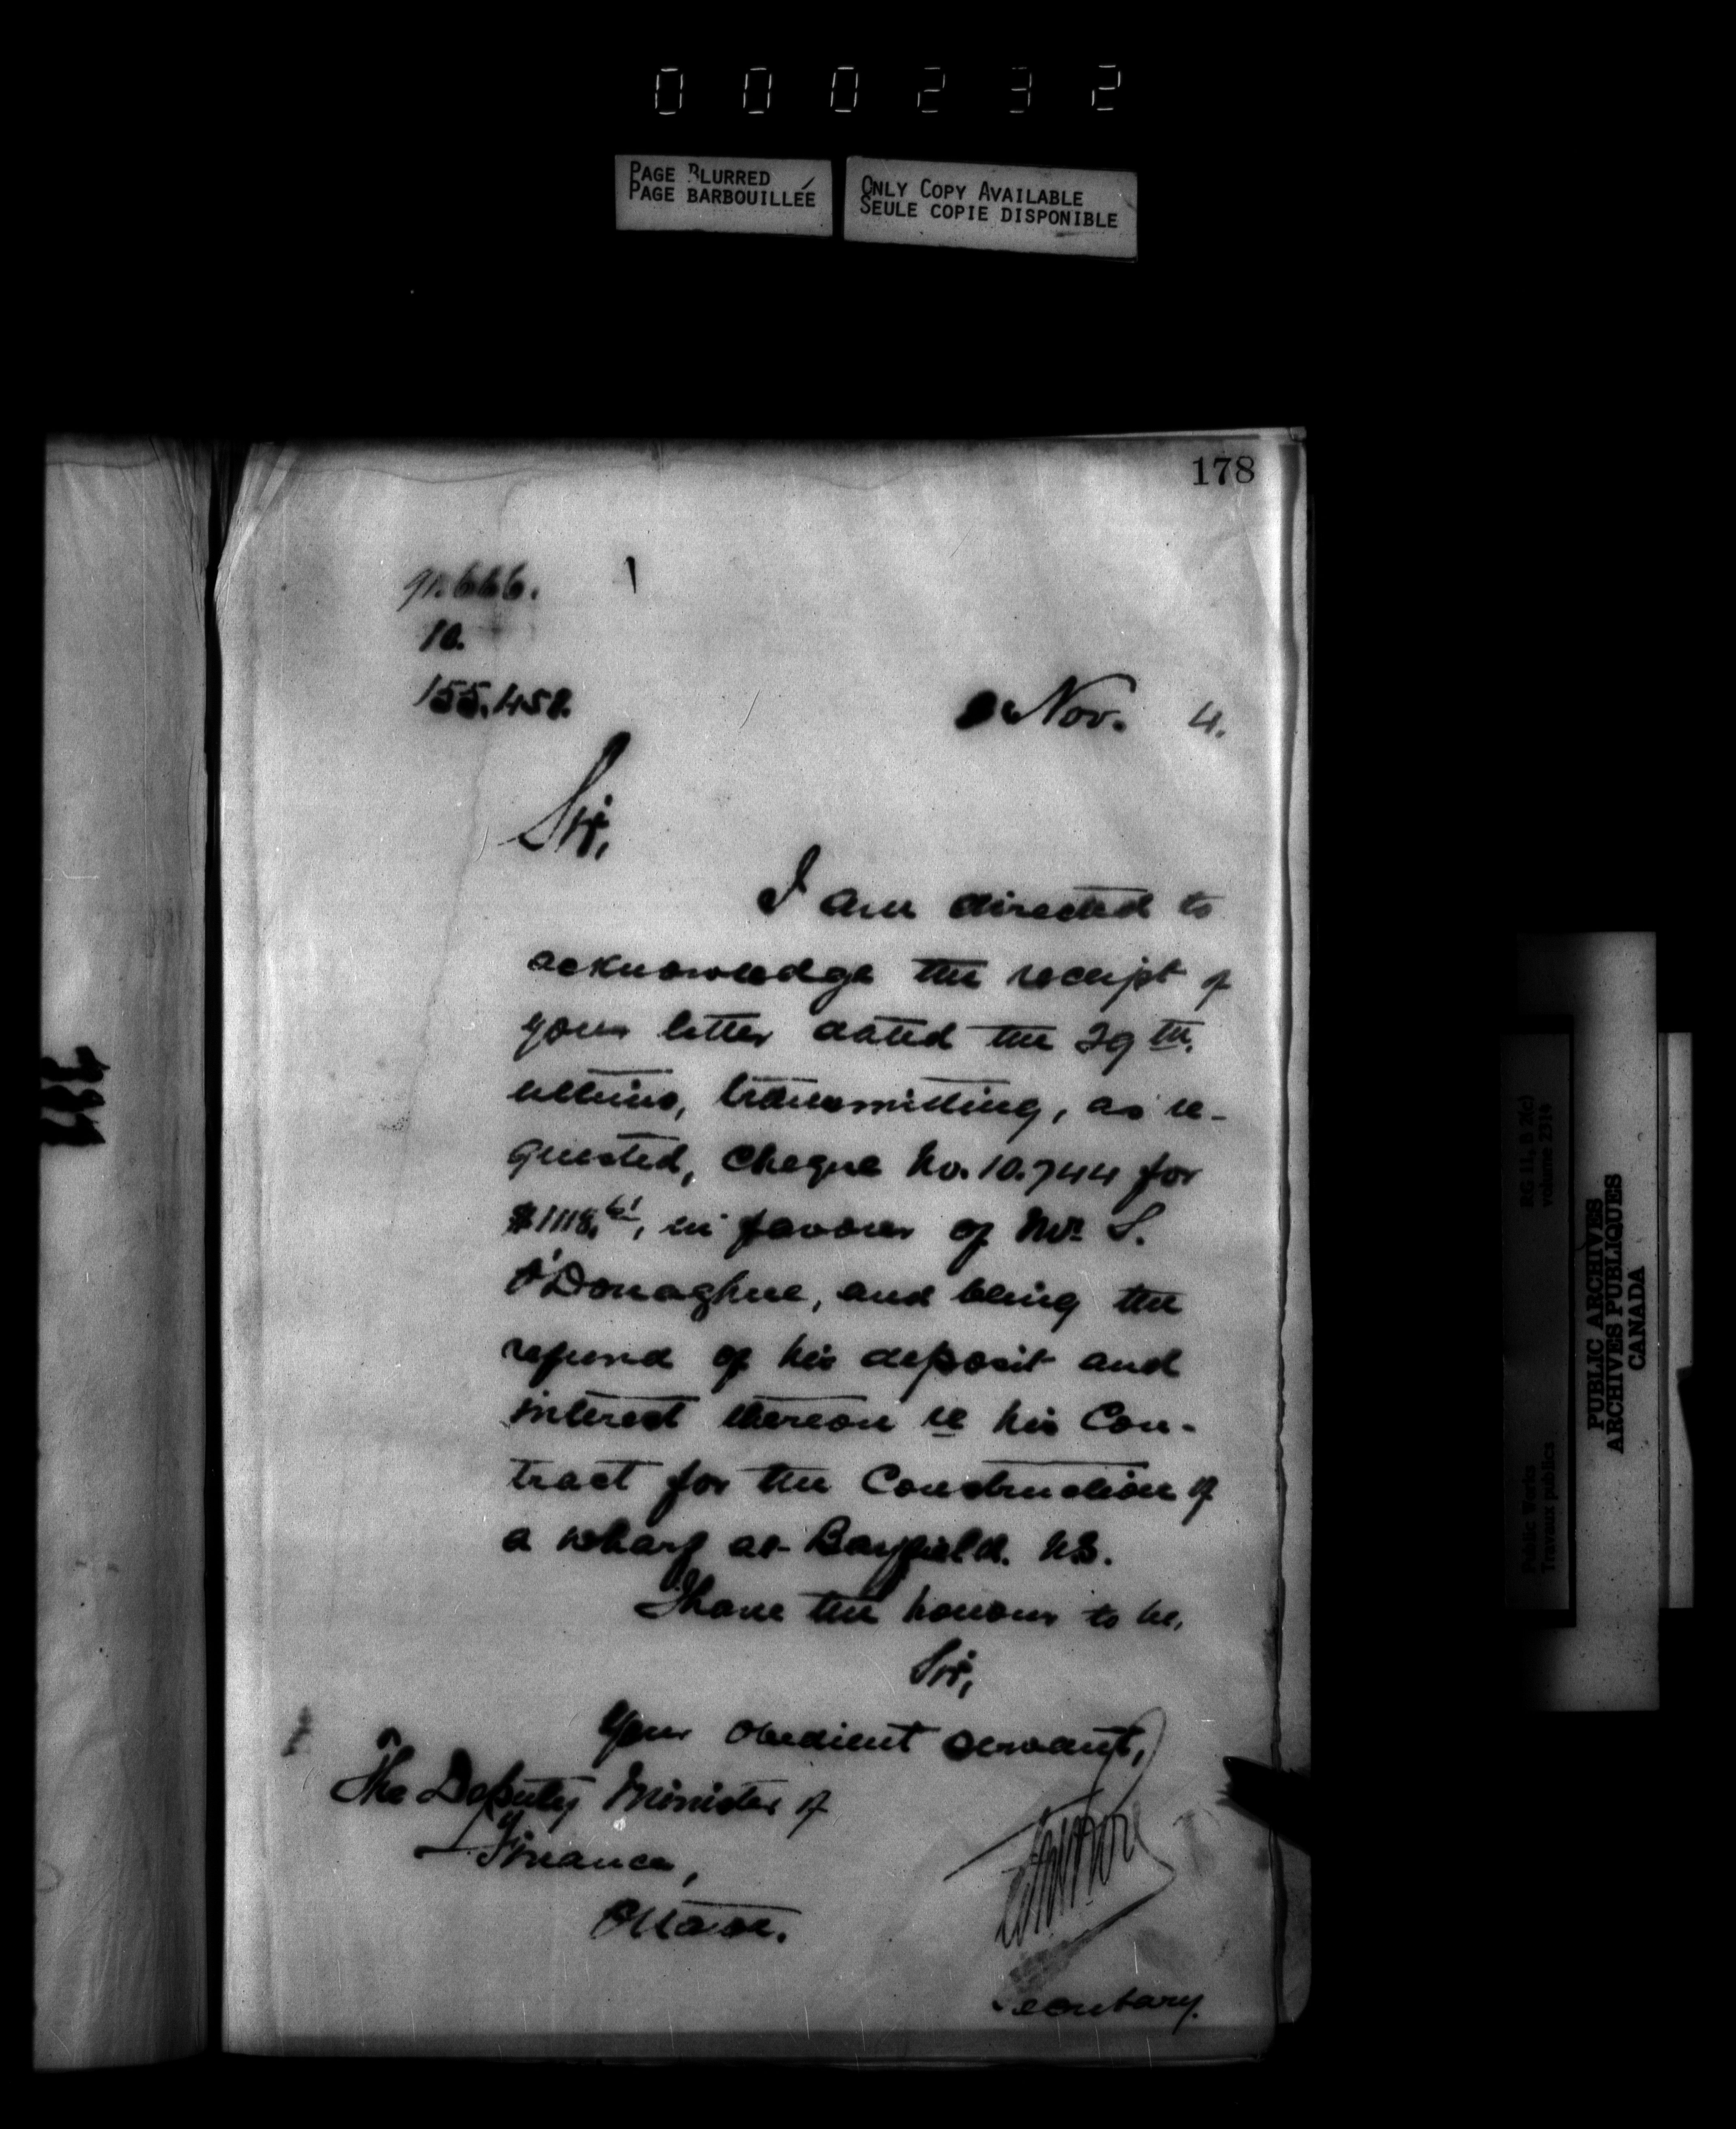 000232
PAGE BLURRED
PAGE BARBOUILLÉE
ONLY COPY AVAILABLE
SEULE COPIE DISPONIBLE
178
10.
155.458.
Nov. 4.
Sir,
I am directed to
acknowledge the receipt of
your letter dated the 29th.
ultimo, transmitting, as re-
quested, Cheque No. 10.744 for
$1118.61, in favour of Mr. S.
O'Donaghue, and being the
refund of his deposit and
interest thereon re his Con-
tract for the Construction of
a wharf at Bayfield. N.S.
I have the honour to be,
Sir,
Your obedient servant,
The Deputy Minister of
Finance,
Ottawa.
Secretary.
RG 11, B 2(c)
volume 2314
Public Works
Travaux publics
PUBLIC ARCHIVES
ARCHIVES PUBLIQUES
CANADA